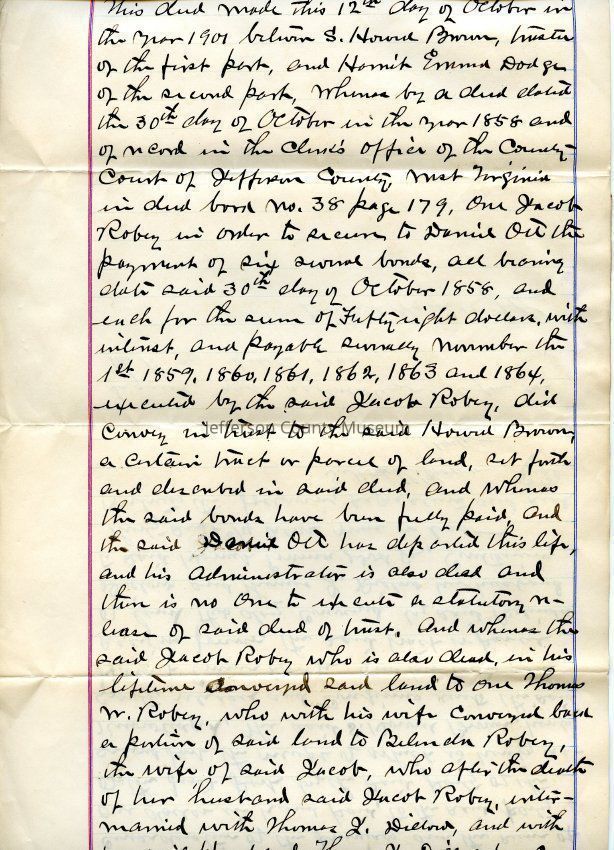 This deed made this 12th day of October in
the year 1901 between S. Howell Brown, trustee
of the first part, and Harriet Emma Dodge
of the second part, Whereas by a deed dated
the 30th day of October in the year 1858 and
of record in the Clerk's office of the County
Court of Jefferson County, West Virginia
in deed book No. 38 page 179, One Jacob
Robey in order to secure to Daniel Ott the
payment of six several bonds, all bearing
date said 30th day of October 1858, and
each for the sum of Fifty eight dollars, with
interest, and payable severally November the
1st 1859, 1860, 1861, 1862, 1863 and 1864,
executed by the said Jacob Robey, did
Jefferson County Museum
Convey in trust to the said Howell Brown,
a certain tract or parcel of land, set forth
and described in said deed, and whereas
the said bonds have been fully paid, and
the said Daniel Ott has departed this life,
and his administrator is also dead and
there is no one to execute a statutory re-
lease of said deed of trust. And whereas the
said Jacob Robey who is also dead, in his
lifetime conveyed said land to one Thomas
W. Robey, who with his wife conveyed back
a portion of said land to Belinda Robey,
the wife of said Jacob, who after the death
of her husband said Jacob Robey, inter-
married with Thomas
and with